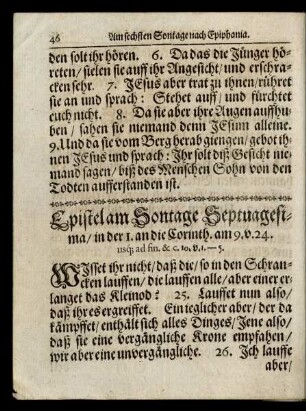 46 Am sechsten Sontage nach Epiphania.
den solt ihr hören. 6. Da das die Jünger hö-
reten/ fielen sie auff ihr Angesicht/ und erschra-
cken sehr. 7. JEsus aber trat zu ihnen/ rühret
sie an und sprach: Stehet auff/ und fürchtet
euch nicht. 8. Da sie aber ihre Augen auffhu-
ben / sahen sie niemand denn JEsum alleine.
9. Und da sie vom Berg herab giengen/ gebot ih-
nen JEsus und sprach: Ihr solt diß Gesicht nie-
mand sagen/ biß des Menschen Sohn von den
Todten aufferstanden ist.
Epistel am Sontage Septuagesi-
ma/ in der 1. an die Corinth. am 9. v. 24.
usq; ad fin. & c. 10. v. 1. — 5.
WIsset ihr nicht/ daß die/ so in den Schran-
cken lauffen/ die lauffen alle/ aber einer er-
langet das Kleinod? 25. Lauffet nun also/
daß ihr es ergreiffet. Ein ieglicher aber/ der da
kämpffet/ enthält sich alles Dinges/ Jene also/
daß sie eine vergängliche Krone empfahen/
wir aber eine unvergängliche. 26. Ich lauffe
aber/